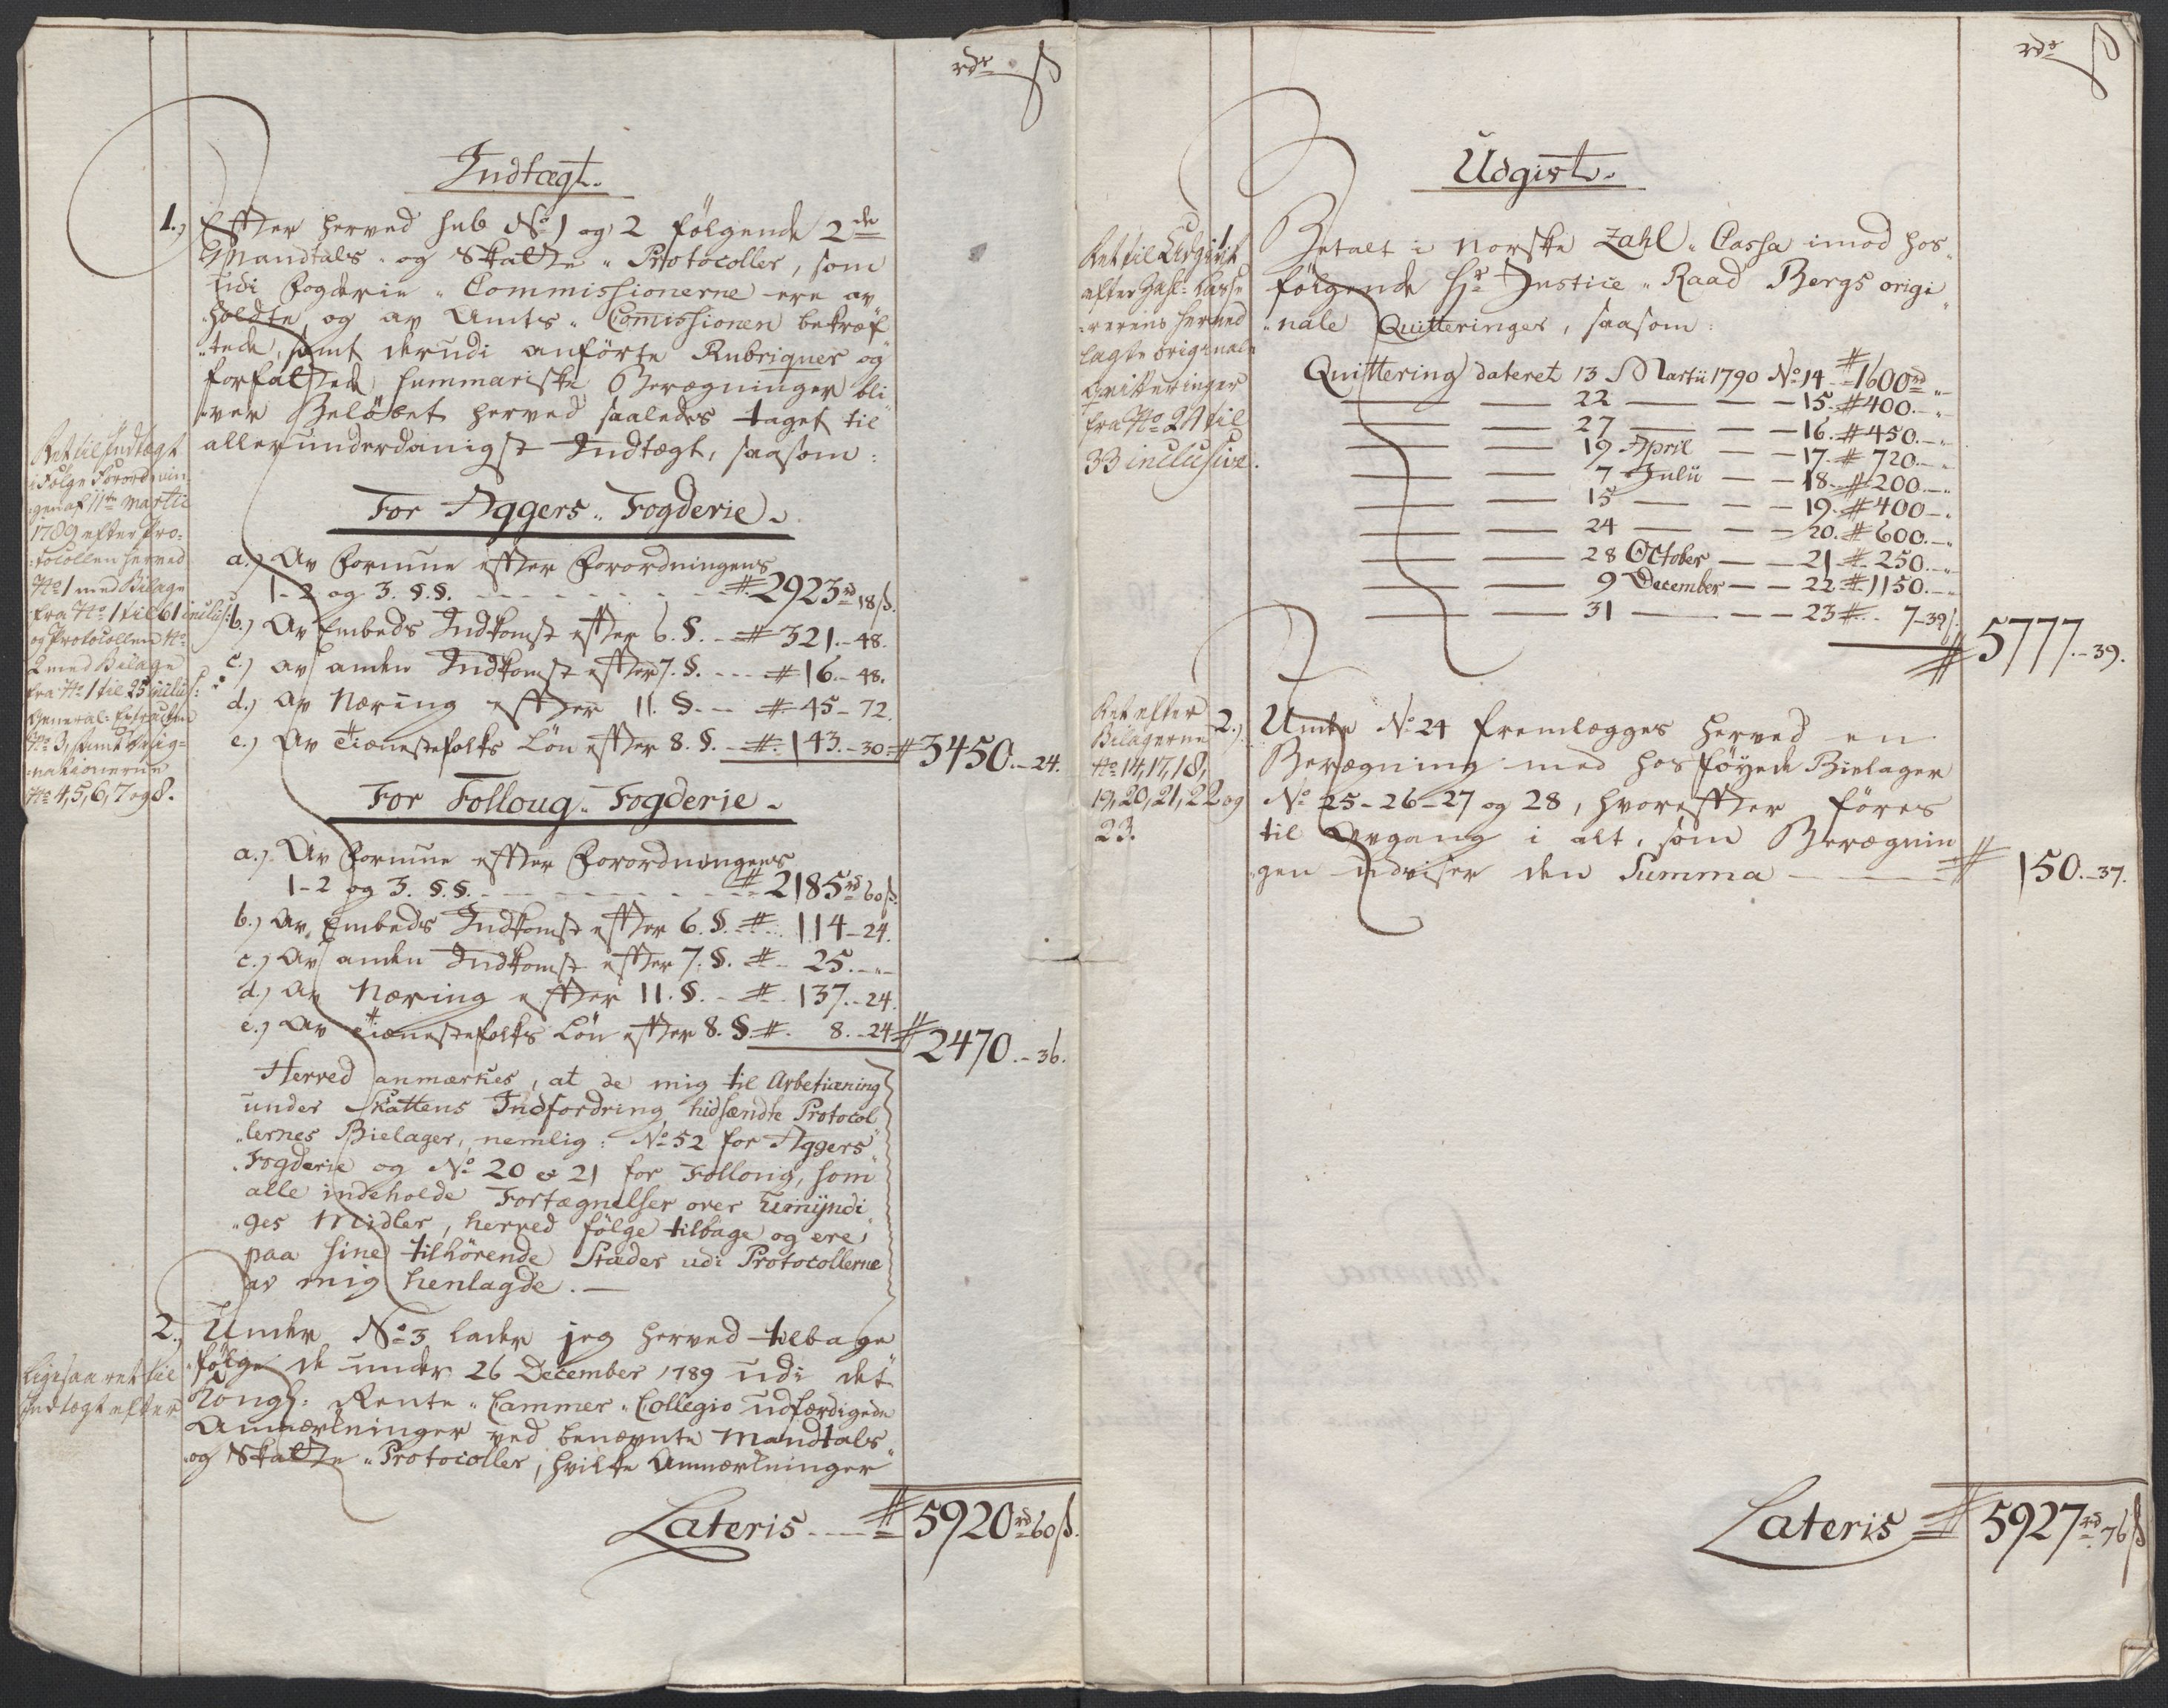 rdr ß
Indtægt.
1.) Efter herved sub No 1 og 2 følgende 2de
Mandtals- og Skatte-Protocoller, som
udi Fogderie-Commissionerne ere av-
holdte og av Amts-Commissionen bekræf-
tede, samt derudi anførte Rubriquer og
forfattede summariske Beregninger bli-
ver Beløbet herved saaledes taget til
allerunderdanigst Indtægt, saasom:
Ret til Indtægt
i følge Forordnin-
gen af 11te Martii
1789 efter Pro-
tocollen herved
No 1 med Bilage
fra No 1 til 61 inclus:
og Protocollen No
2 med Bilage
fra No 1 til 25 inclus:
General-Extracten
No 3, samt
No 4, 5, 6, 7 og 8.
For Aggers Fogderie
a.) Av Formue efter Forordningens
1-2 og 3. §.§. - - - # 2923 rd 18 ß.
b.) Av Embeds Indkomst efter 6. §. - # 321. - 48.
c.) av anden Indkomst efter 7. §. - - - # 16. - 48.
d.) av Næring efter 11. §. - - # 45 - 72.
e.) Av Tienestefolks Løn efter 8. §. - # 143. - 30 = # 3450. - 24.
For Folloug Fogderie
a.) Av Formue efter Forordningens
1-2 og 3. §.§. - - - # 2185 rd 60 ß.
b.) Av Embeds Indkomst efter 6. §. # 114 - 24.
c.) Av anden Indkomst efter 7. §. # - 25. - " -
d.) Av Næring efter 11. §. - # - 137. - 24.
e.) Av Tienestefolks Løn efter 8. § # . 8. - 24 # 2470. - 36.
Herved anmærkes, at de mig til Avbetiening
under Skattens Indfordring hidsændte Protocol-
lernes Bielager, nemlig: No 52 for Aggers
Fogderie og No 20 & 21 for Follong, som
alle indeholde Fortægnelser over Umyndi-
ges Midler, herved følge tilbage og ere
paa sine tilhørende Stæder udi Protocollerne
av mig henlagde. -
2.) Under No 3 lader jeg herved tilbage
følge de under 26 December 1789 udi det
Kongl: Rente-Cammer-Collegio udfærdigede
Anmærkninger ved benævnte Mandtals-
og Skatte-Protocoller, hvilke Anmærkninger
Ligesaa ret til
Indtægt efter
Lateris - - # 5920 rd 60 ß.
rdr ß
Udgivt.
1. Betalt i Norske Zahl-Cassa imod hos-
følgende Hr Justice-Raad Bergs origi-
nale Quitteringer, saasom:
Ret til Udgivt
efter Zahl-Casse-
rerens herved
lagte original
Qvitteringer
fra No 24 til
33 inclusive.
Quittering dateret 13 Martii 1790 No 14 - # 1600 rd "
22 - 15. # 400. - "
27 - 16. # 450. - "
19 April - 17. # 720. - "
7 Julii - 18. # 200. - "
15 - 19. # 400 - "
24 - 20. # 600. - "
28 October - 21 # 250. - "
9 December - 22 # 1150. - "
31 - 23 # - 7 - 39 ß.
# 5777. - 39.
2.) Under No 24 fremlægges herved en
Beregning med hosføyede Bielager
No 25-26-27 og 28, hvorefter føres
til Avgang i alt, som Beregnin-
gen udviser den Summa - - # 150. - 37.
Ret efter
Bilagerne
No 14, 17, 18,
19, 20, 21, 22 og
23.
Lateris # 5927 rd 76 ß